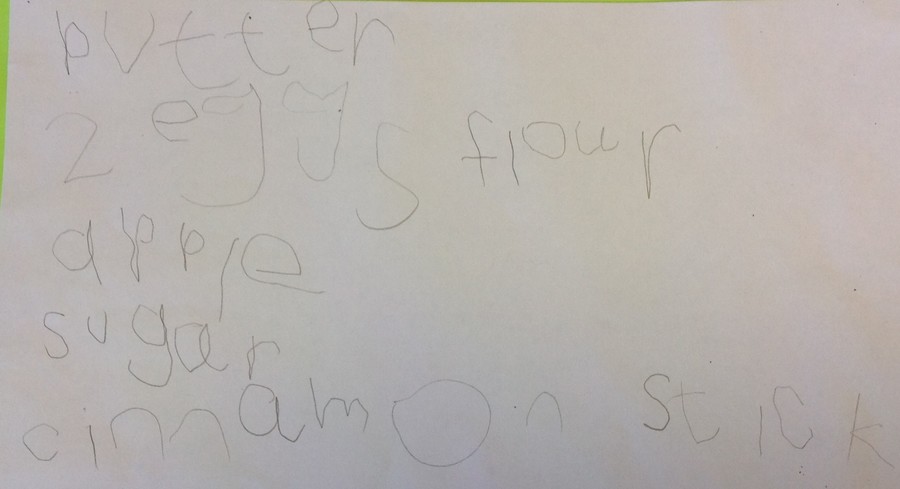 butter
2 eggs flour
apple
sugar
cinnamon stick